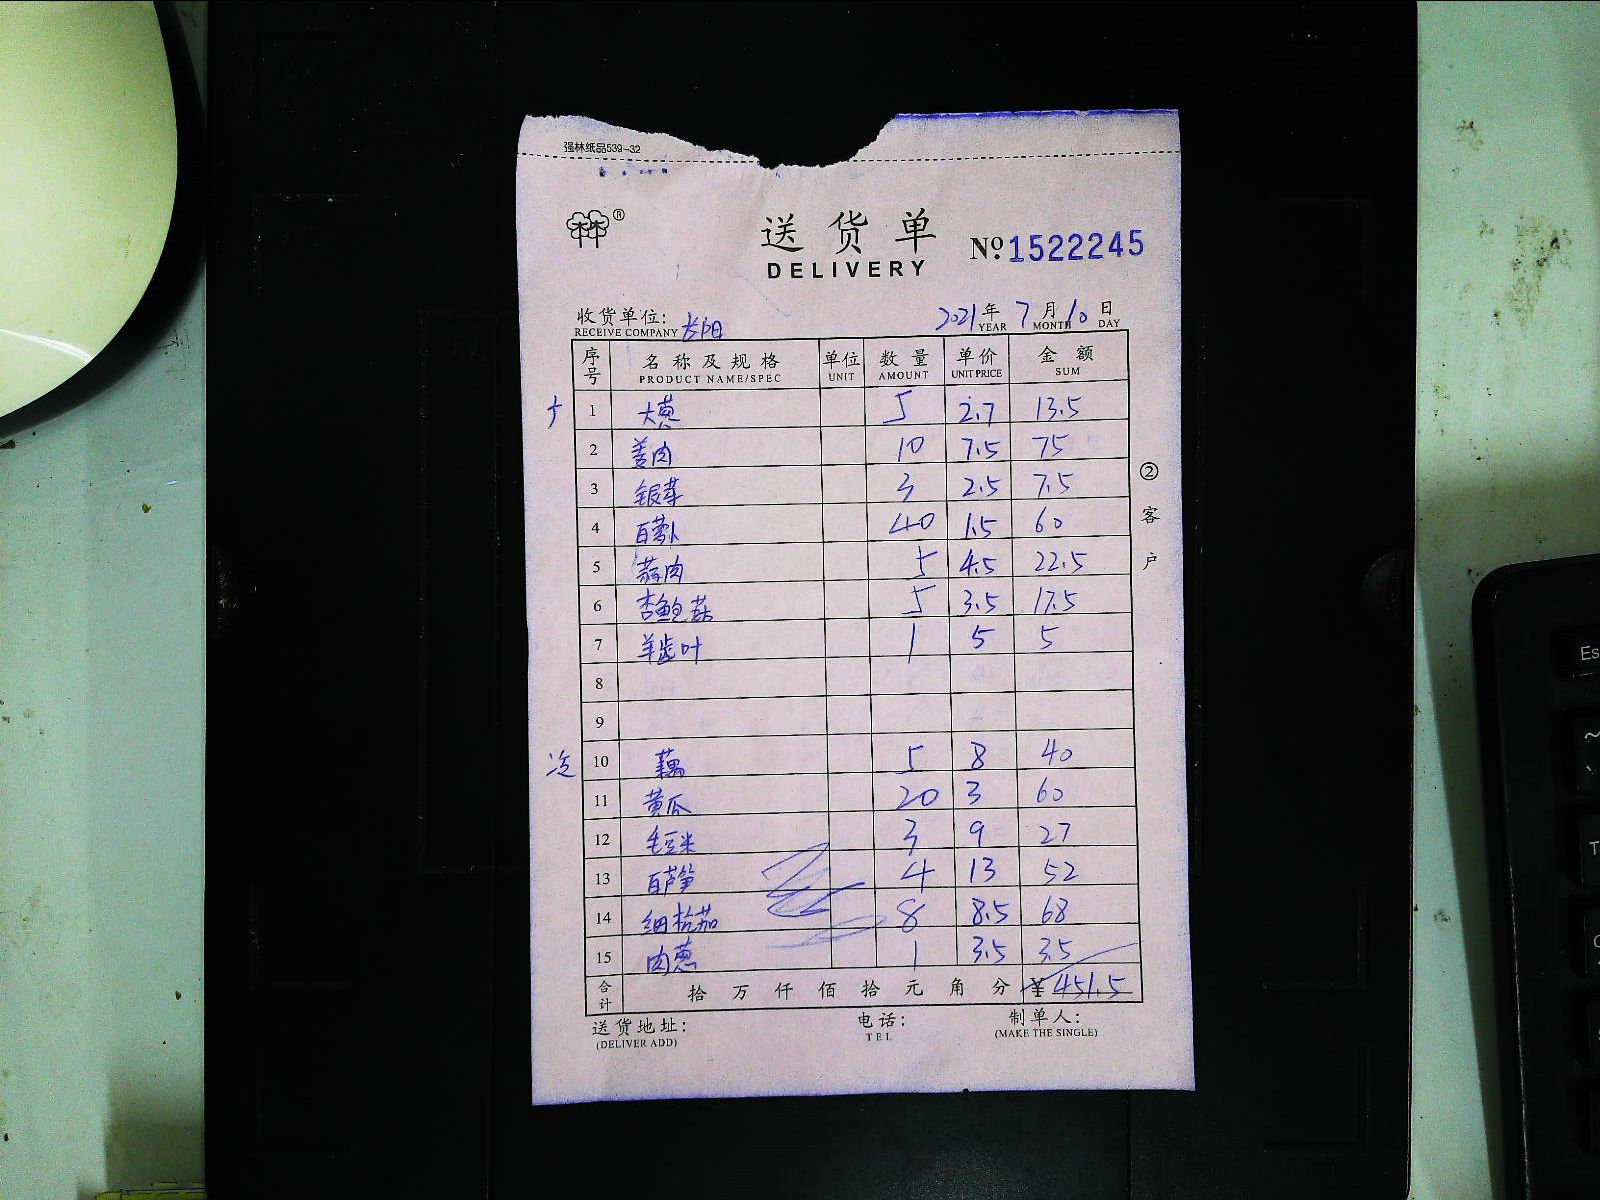 强林纸品539-32
送货单
DELIVERY
№:1522245
收货单位: 长阳 2021年 7月 10日
RECEIVE COMPANY YEAR MONTH DAY
序号 名称及规格 单位 数量 单价 金额
PRODUCT NAME/SPEC UNIT AMOUNT UNIT PRICE SUM
1 大葱 5 2.7 13.5
2 姜肉 10 7.5 75
3 银芽 3 2.5 7.5
4 百萝卜 40 1.5 60
5 蒜肉 5 4.5 22.5
6 杏鲍菇 5 3.5 17.5
7 羊齿叶 1 5 5
8
9
10 藕 5 8 40
11 黄瓜 20 3 60
12 毛豆米 3 9 27
13 百芦笋 4 13 52
14 细杭茄 8 8.5 68
15 肉葱 1 3.5 3.5
合计 拾 万 仟 佰 拾 元 角 分 ¥451.5
送货地址: 电话: 制单人:
(DELIVER ADD) TEL (MAKE THE SINGLE)
② 客户
Es